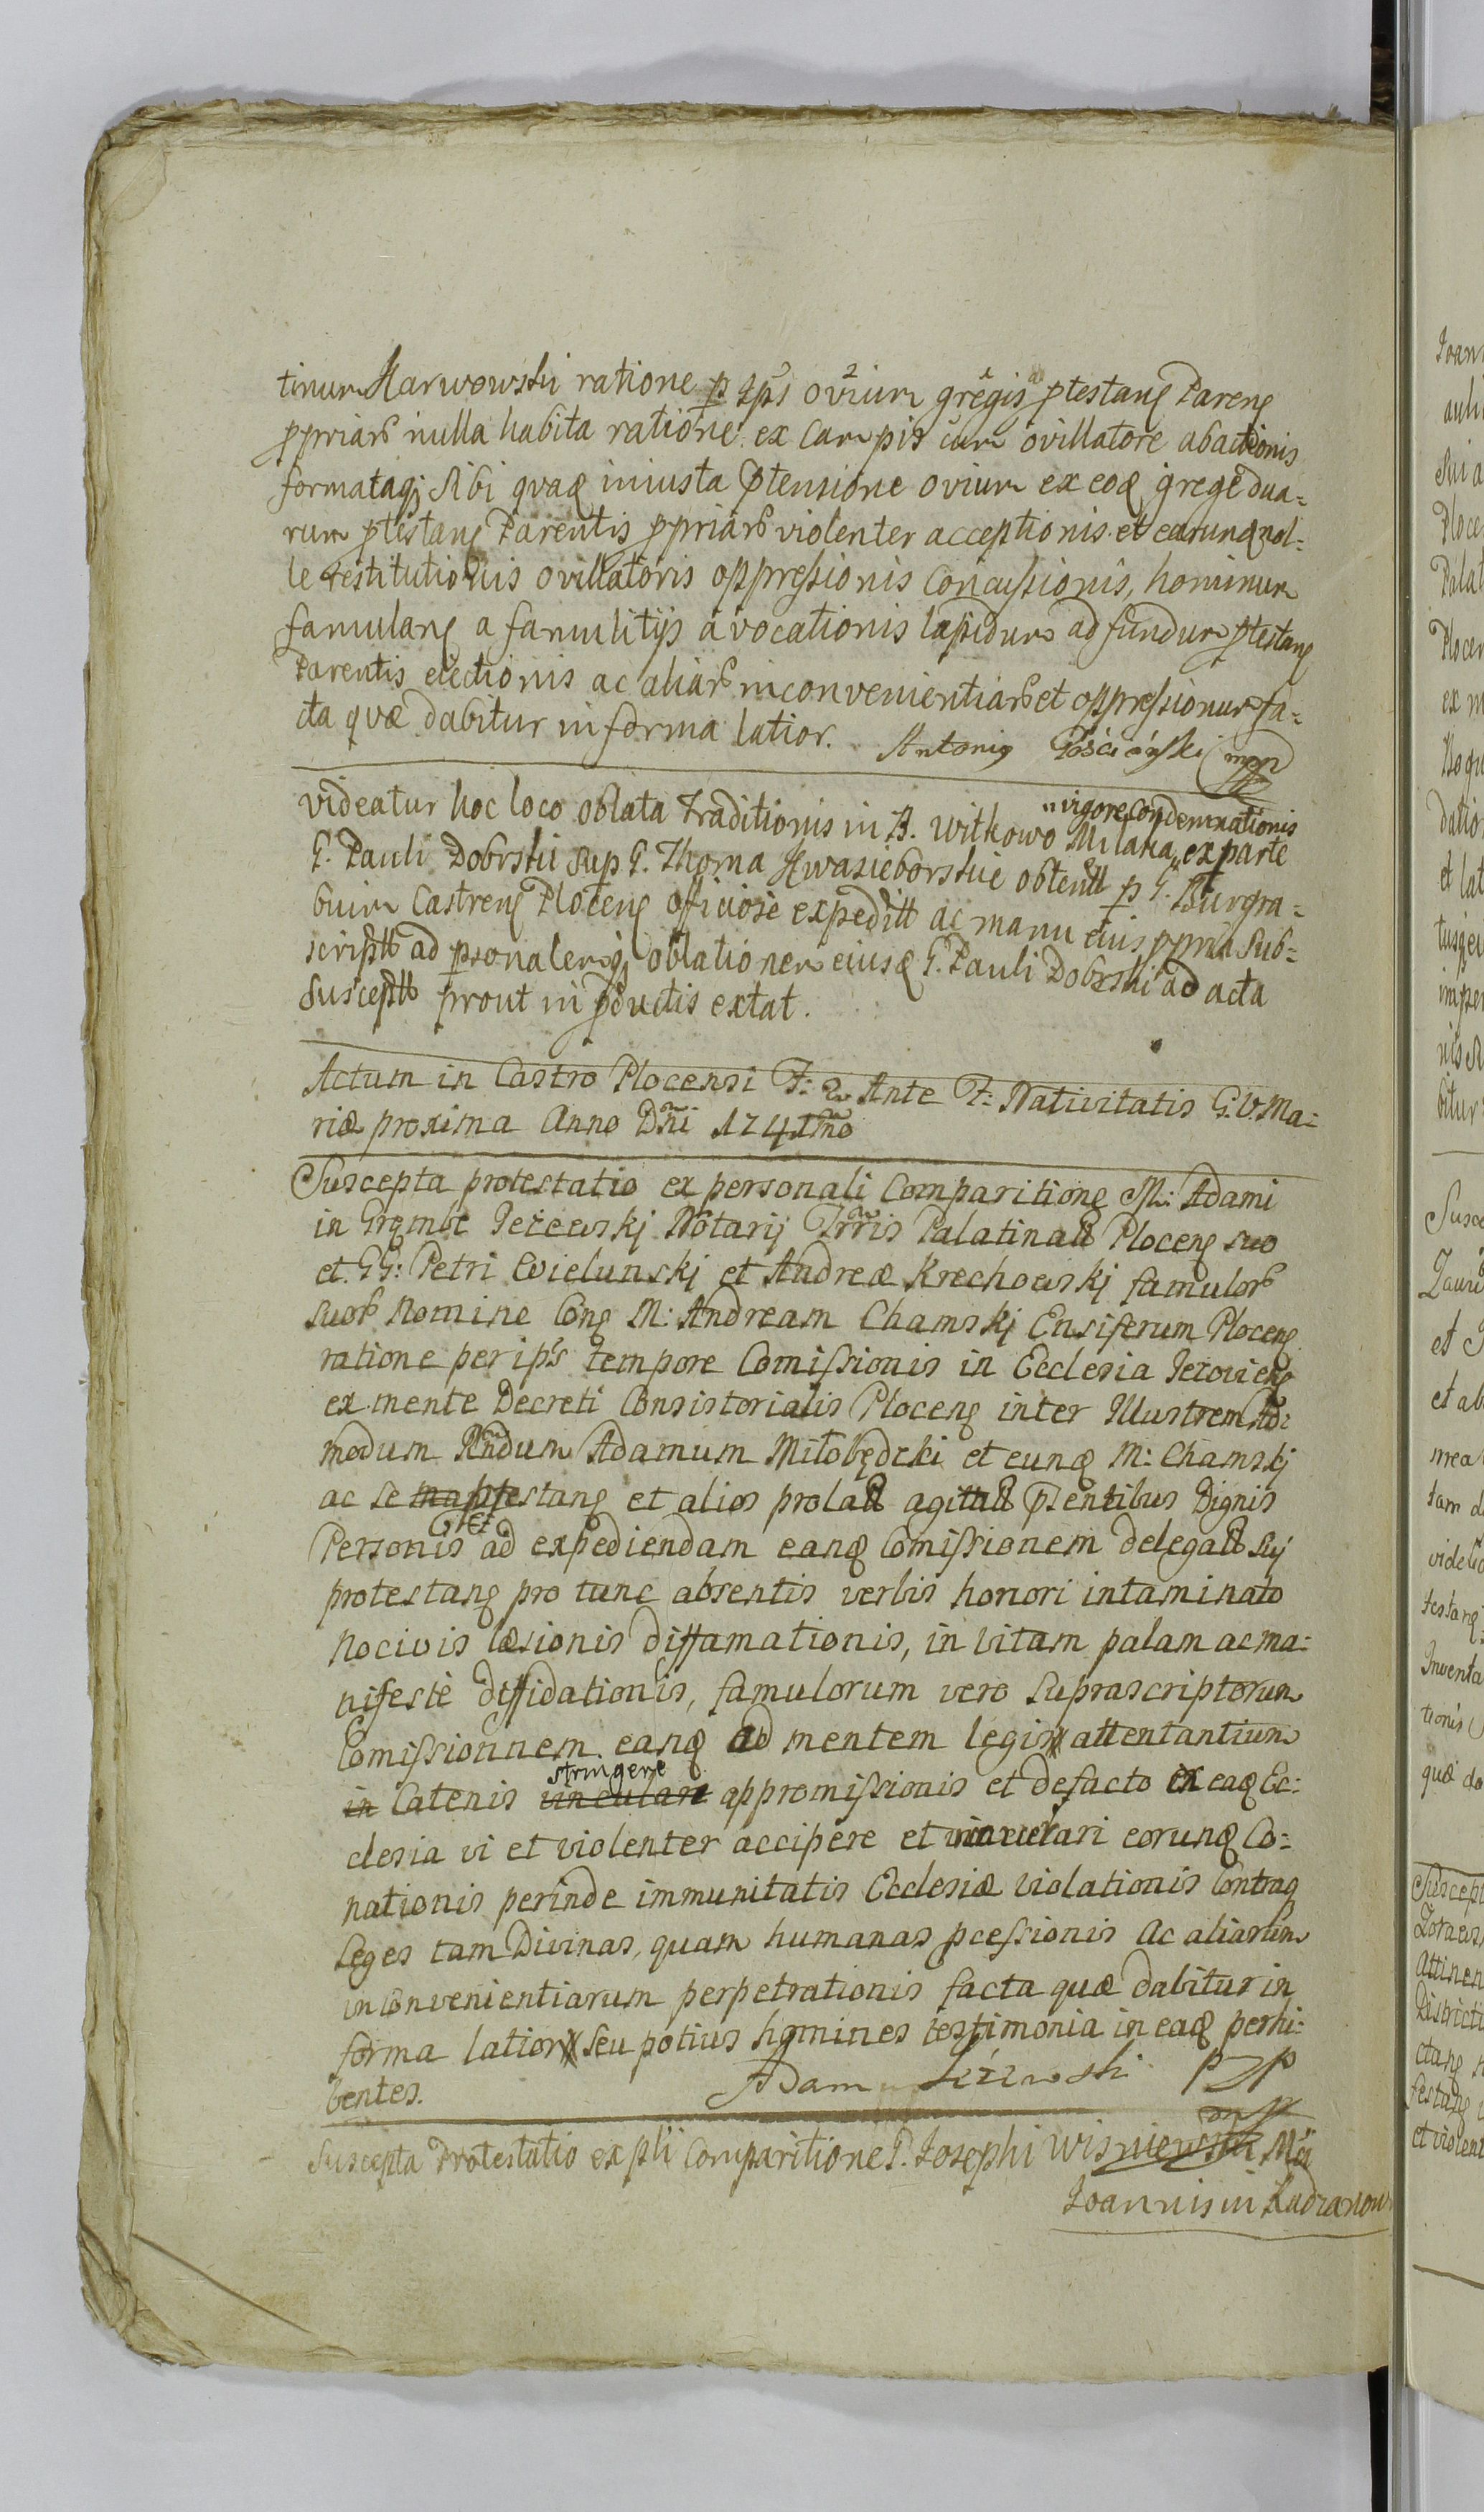 tinum Karwowski ratione p ips ovium gregis ptestang Pareng
ppriarum nulla habita ratione ex Campis cum ovillatore abactionis
formatag sibi quaq iniusta ptensione ovium ex eoq grege dua=
rum ptestang Parentis ppriarum violenter acceptionis et earunq nol=
le restitutionis ovillatoris oppressionis concussionis, hominum
famulang a famulitijs avocationis lapidum ad fundum ptestang
Parentis eiectionis ac aliarum inconvenientiarum et oppressionum fa=
cta quæ dabitur in forma latior. Antonig Gościński mpp
videatur hoc loco oblata traditionis in B. Witkowo Milaka "vigore Condemnationis" ex parte
G. Pauli Dobrski sup G. Thoma Kwasieborskie obtent p G. Burgra=
buim Castreng Ploceng officiose expedit ac manu eius ppria sub=
script ad psonalemq oblationem eiusq G. Pauli Dobrski ad acta
suscept prout in pductis extat.
Actum in Castro Plocensi F: 2 Ante F: Nativitatis G. V. Ma=
riæ proxima Anno Dni 1741mo
Suscepta protestatio ex personali Comparitione M: Adami
in Jeżewskj Notarij Trris Palatinat Ploceng suo
et GG: Petri Wielunskj et Andreæ Krechowskj famulor
suor Nomine Cong M: Andream Chamskj Ensiferum Ploceng
ratione per ips tempore Comissionis in Ecclesia Jezovieng
ex mente Decreti Consistorialis Ploceng inter Illustrem Ad=
modum Rndum Adamum Miłobędzki et eunq M: Chamskj
ac se ptestang et alios prolat agitat psentibus Dignis
Personis et ad expediendam eanq Comissionem delegat Sui
protestang pro tunc absentis verbis honori intaminato
nocivis læsionis diffamationis, in vitam palam ac ma=
nifestè diffidationis, famulorum vero suprascriptorum
Comissionnem eanq ad mentem legis attentantium
in Catenis vinculare stringere appromissionis et defacto ex eaq Ec=
clesia vi et violenter accipere et vinculari eorunq Co=
nationis perinde immunitatis Ecclesiæ violationis Contraq
leges tam Divinas, quam humanas pcessionis ac aliarum
inconvenientiarum perpetrationis facta quæ dabitur in
forma latiori seu potius homines testimonia in eaq perhi=
bentes. Adam Jeżewski PZP
mp
Suscepta Protestatio ex psli Comparitione G. Josephi Wisniewski Mci
Joannis in Ładzanow